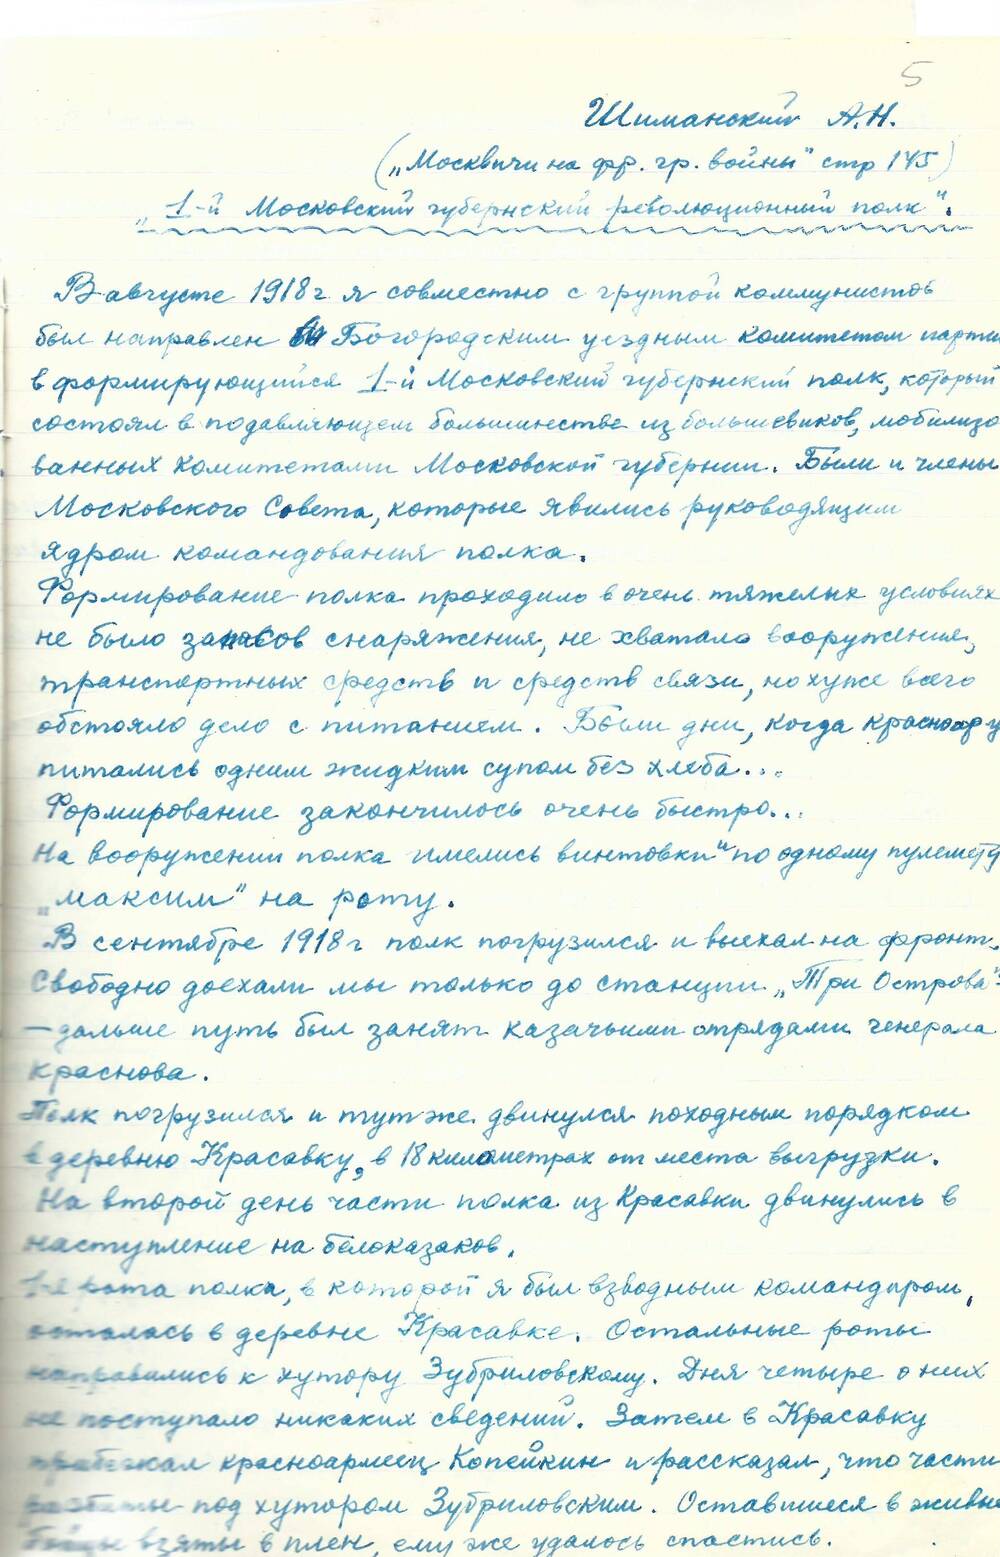 5
Шиманский А.Н.
(„Москвичи на фр. гр. войны" стр 145)
„1-й Московский губернский революционный полк".
В августе 1918 г я совместно с группой коммунистов
был направлен Богородским уездным комитетом парти
в формирующийся 1-й Московский губернский полк, который
состоял в подавляющем большинстве из большевиков, мобилизо
ванных комитетами Московской губернии. Были и члены
Московского Совета, которые явились руководящим
ядром командования полка.
Формирование полка проходило в очень тяжелых условиях
не было запасов снаряжения, не хватало вооружения,
транспортных средств и средств связи, но хуже всего
обстояло дело с питанием. Были дни, когда красноарм
питались одним жидким супом без хлеба...
Формирование закончилось очень быстро...
На вооружении полка имелись винтовки и по одному пулемету
„максим" на роту.
В сентябре 1918 г полк погрузился и выехал на фронт.
Свободно доехали мы только до станции „Три Острова"
— дальше путь был занят казачьими отрядами генерала
Краснова.
Полк погрузился и тут же двинулся походным порядком
в деревню Красавку, в 18 километрах от места выгрузки.
На второй день части полка из Красавки двинулись в
наступление на белоказаков.
1-я рота полка, в которой я был взводным командиром,
осталась в деревне Красавке. Остальные роты
направились к хутору Зубриловскому. Дня четыре о них
не поступало никаких сведений. Затем в Красавку
прибежал красноармеец Копейкин и рассказал, что части
разбиты под хутором Зубриловским. Оставшиеся в живых
бойцы взяты в плен, ему же удалось спастись.